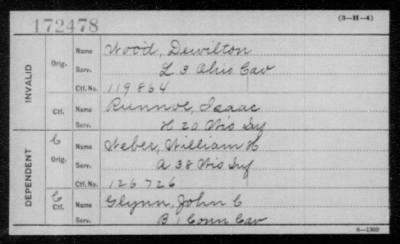 172478
(3-H-4)
INVALID
Orig.
Name Wood, Dewilton
Serv. L 3 Ohio Cav
Ctf. No. 119864
Ctf.
Name Runnoe, Isaac
Serv. H 20 Wis Inf
DEPENDENT
C
Orig.
Name Weber, William H
Serv. A 38 Wis Inf
Ctf. No. 126726
C
Ctf.
Name Glynn, John C
Serv. B 1 Conn Cav